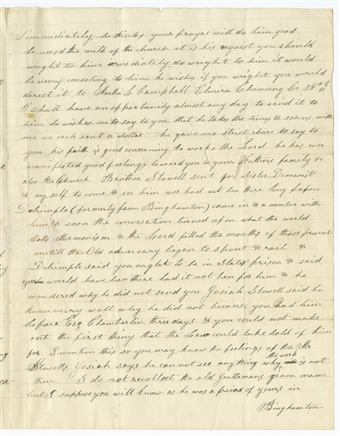 immediately he thinks your prayes will do him good
he need the milk of the church it is his request you should
wright to him immediately do wright to him it would
be verry consoling to him he wishes if you wright you would
direct it to Martha L Campbell Elmira Chemung Co N Y
I shall have an opportunity almost any day to send it to
him he wishes me to say to you that he takes the times & seasons with
me we each sent a dollar he gave me strict charge to say to
you his faith is good concerning the works the Lord he has ever
manifested good feelings toward you & your Fathers family &
also the Church Brother Stowell sent for Sister Demarest
& my self to come & see him we had not ben there long before
D Whimple (formerly from Binghamton) came in & a number with
him & soon the conversation turned upon what the world
calls Mormonism & the Lord filled the mouths of those present
untill the Old adversary began to spout & rail &
D Whimple said you ought to be in States prison & said
you would have ben there had it not ben for him & he
wondered why he did not send you Josiah Stowell said he
knew verry well why he did not because you had him
before Esq Chamberlin three days & you could not make
out the first thing that the Law could take hold of him
for I mention this so you may know the feelings of the Mr
Stowells Josiah says he can not see any thing why the work is not
true I do not recollect the old Gentlemans given name
but I suppose you will know as he was a friend of yours in
Binghamton